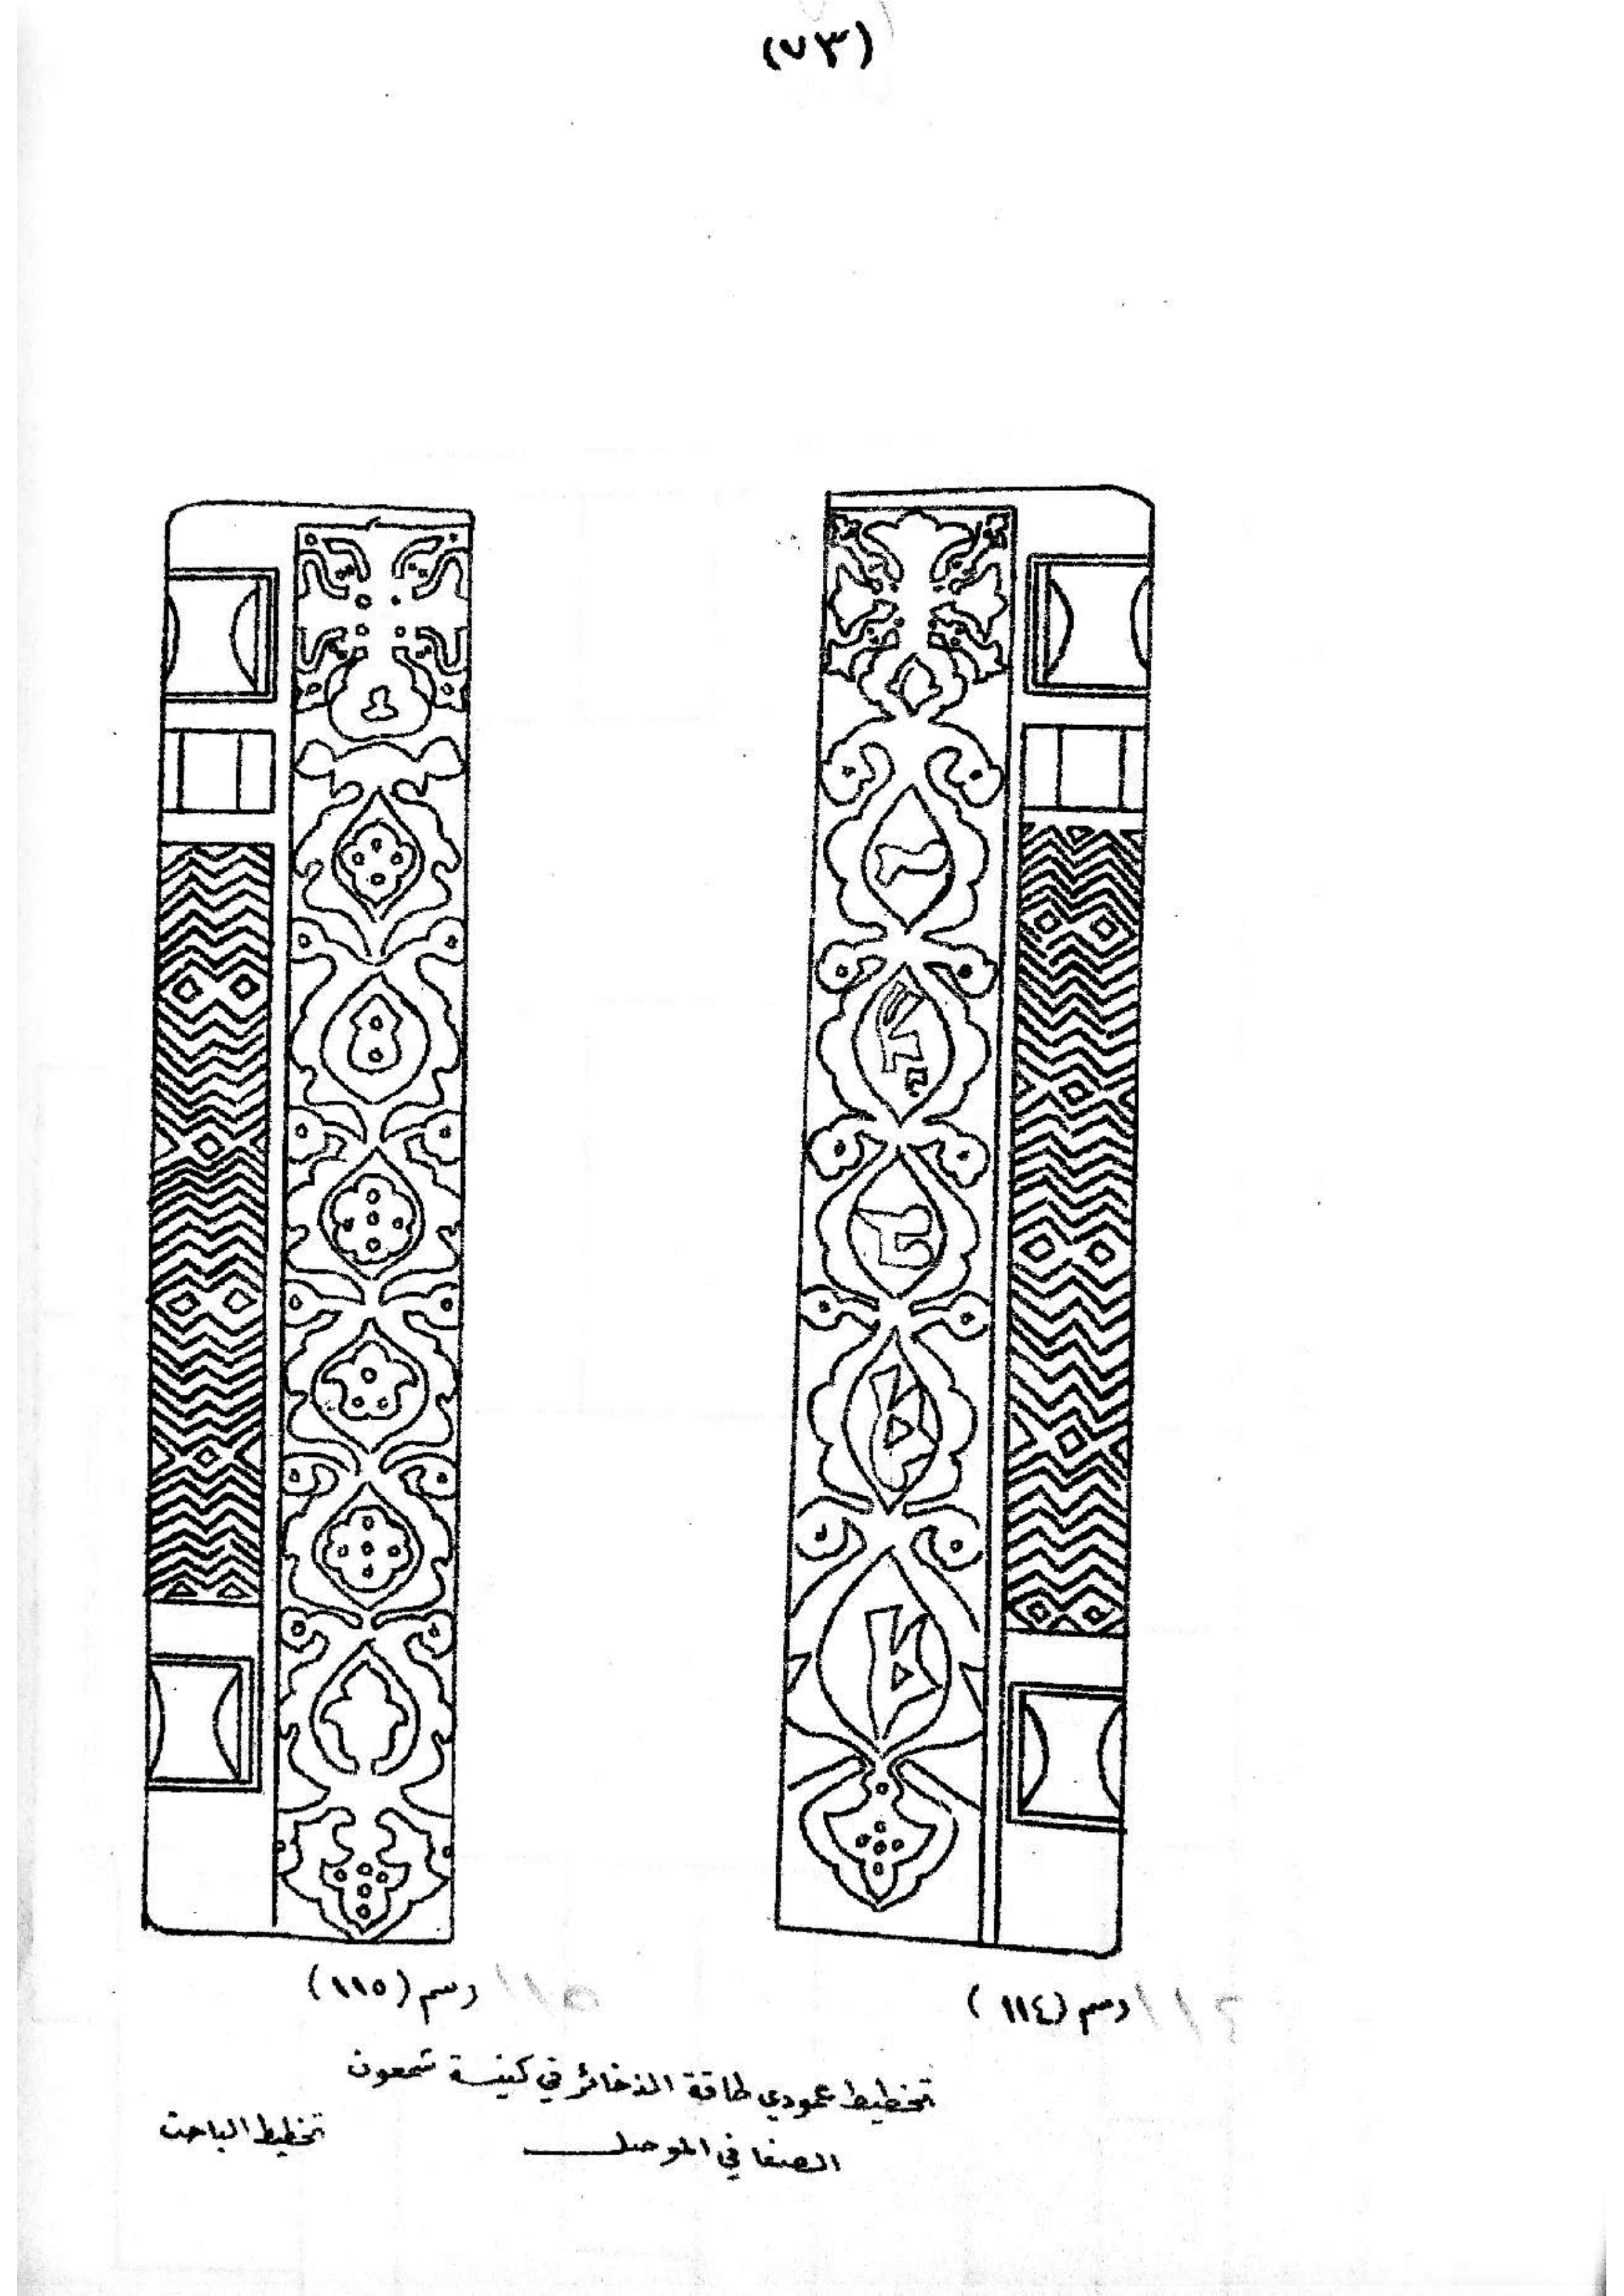 (٧٣)
رسم (١١٤)
رسم (١١٥)
تخطيط عمودي طاقة الذخائر في كنيسة شمعون
الصفا في الموصل
تخطيط الباحث